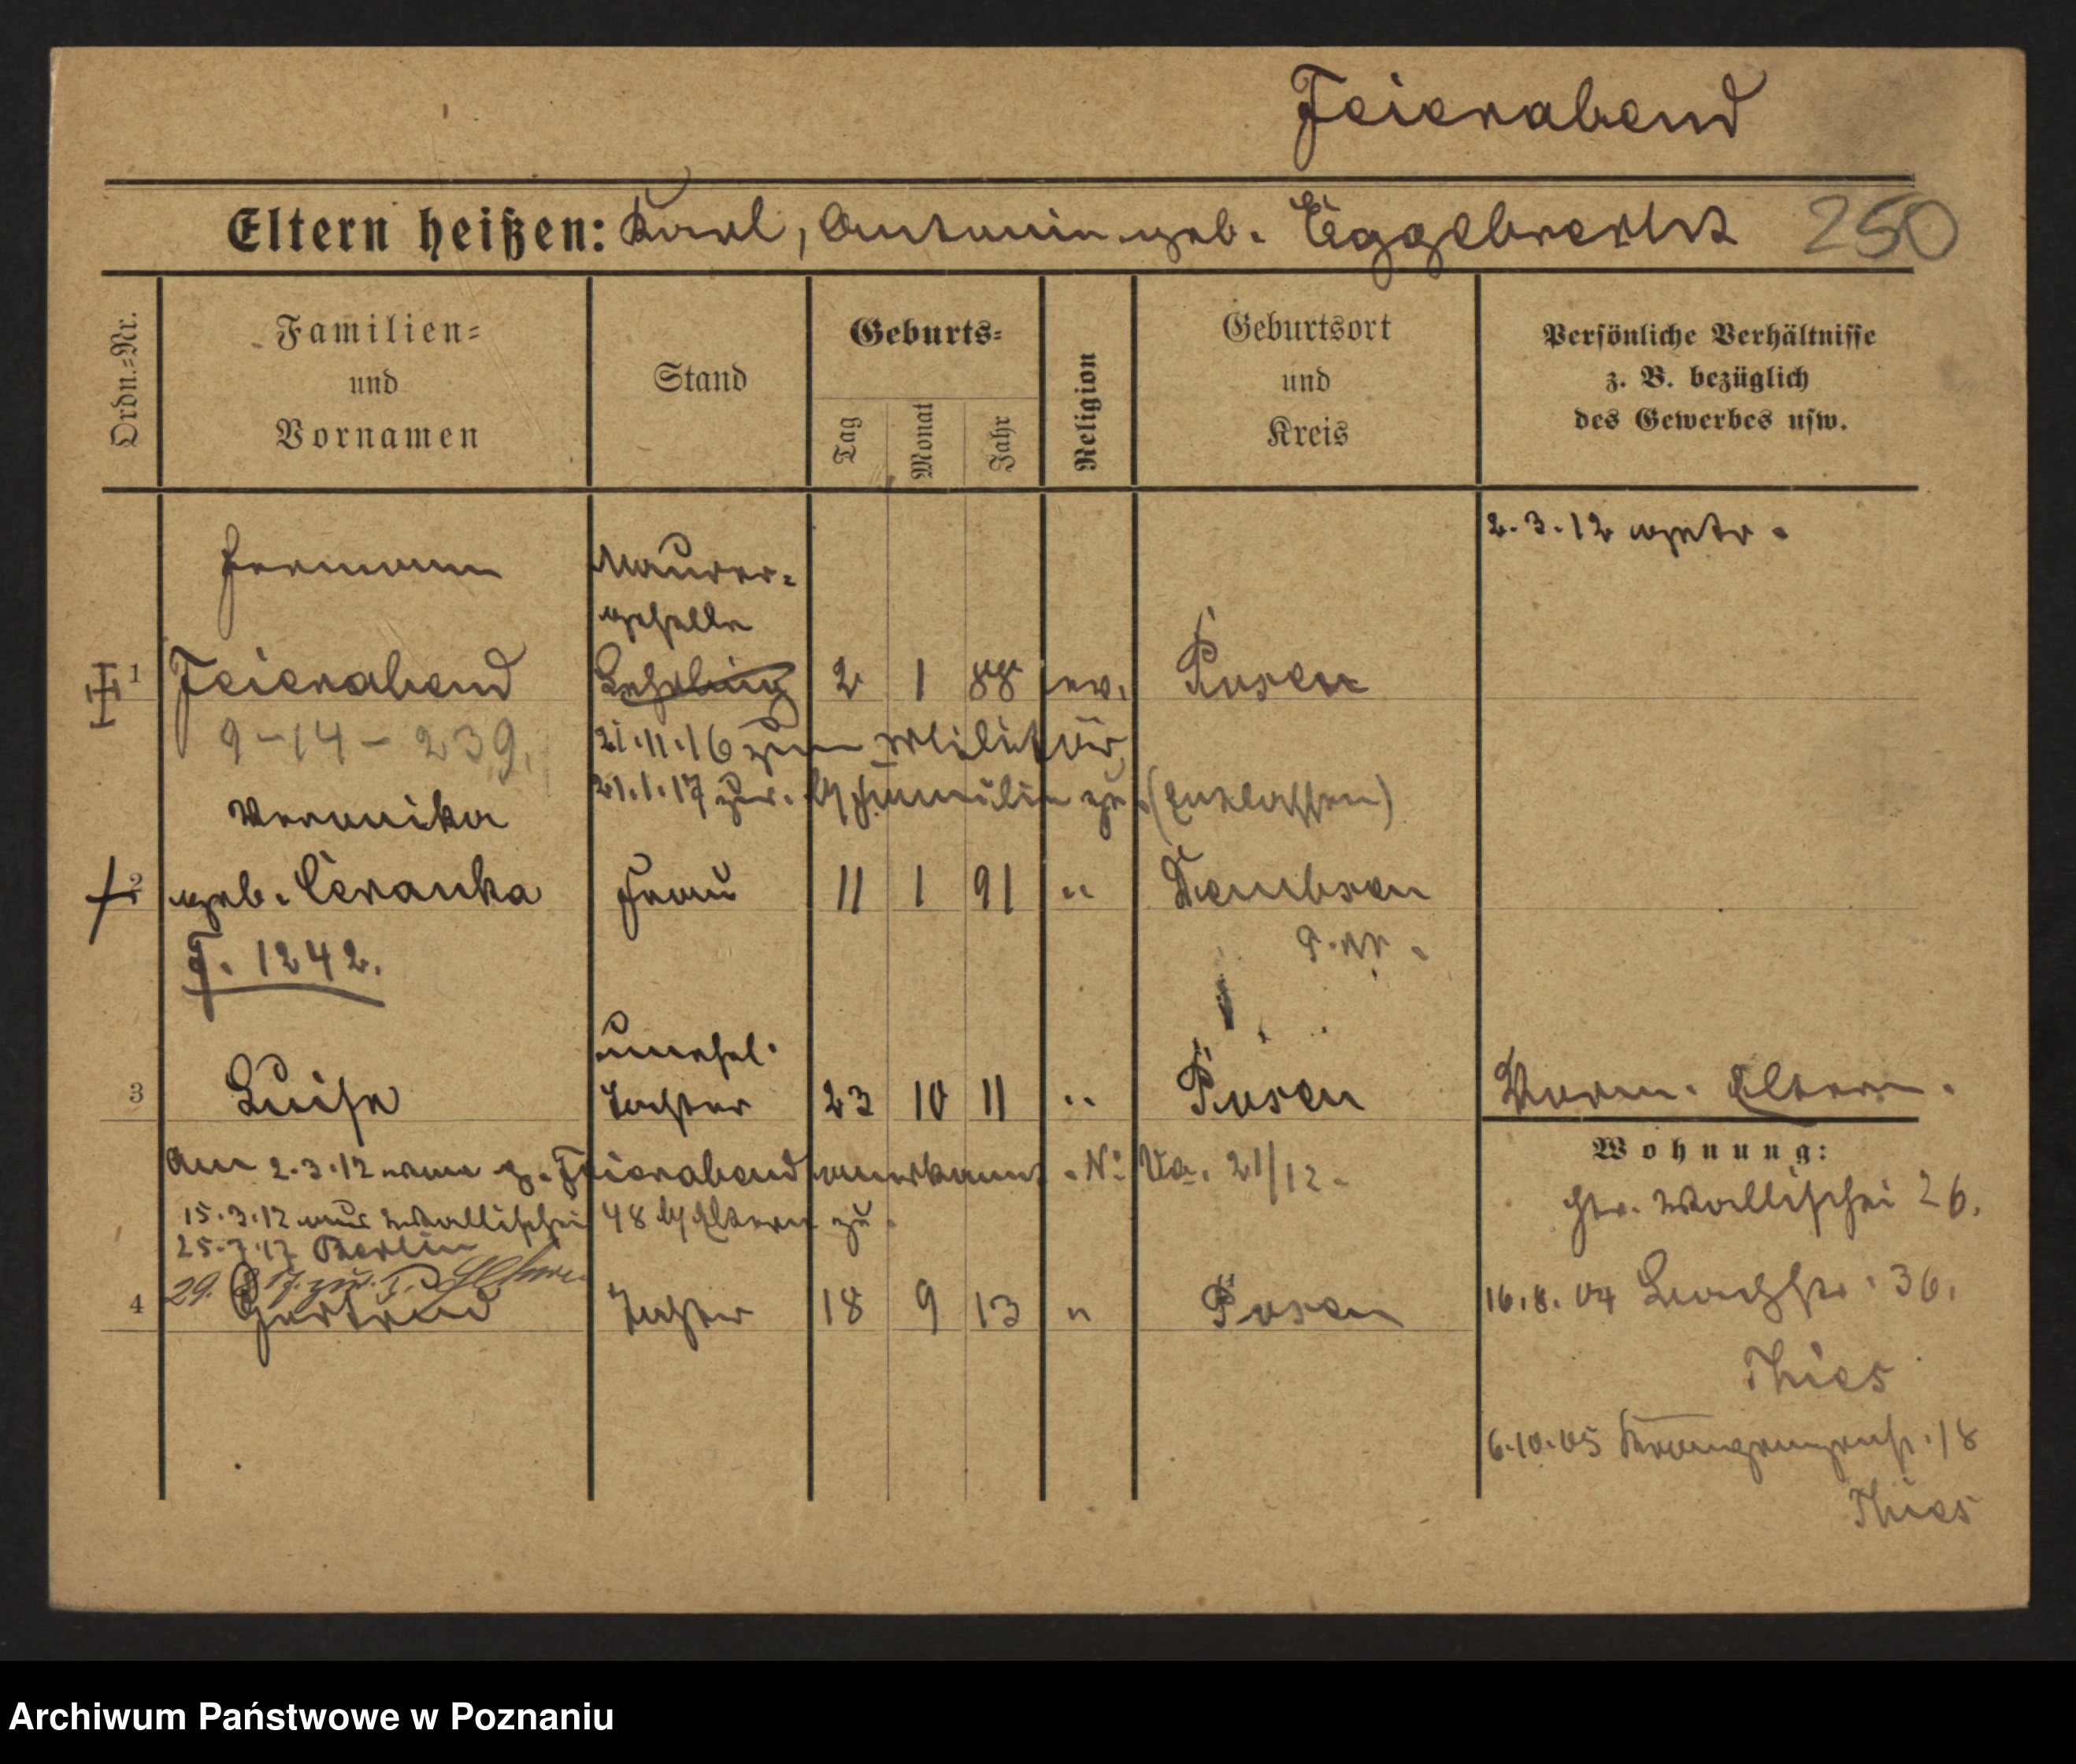 Feierabend
Eltern heißen: Karl, Antonin geb. Eggebrecht 250
Ordn.=Nr.
Familien=
und
Vornamen
Stand
Geburts=
Tag
Monat
Jahr
Religion
Geburtsort
und
Kreis
Persönliche Verhältnisse
z. B. bezüglich
des Gewerbes usw.
2.3.12 getr.
Hermann Maurer=
geselle
1 Feierabend Lehrling 2 1 88 ev. Posen
9-14-239. 21.11.16 zum Militär
21.1.17 zur. Familie zu (entlassen)
Veronika
2 geb. Ceranka Frau 11 1 91 " Dembsen
P. W.
T. 1242.
unehel.
3 Luise Tochter 23 10 11 " Posen Vorm. Eltern.
Am 2.3.12 Feierabend anerkannt. No Va. 21/12.
Wohnung:
15.3.12 aus Wallischei 48 Eltern zu.
Gr. Wallischei 26.
25.7.17 Berlin
29. 8 17. zur.
4 Gertrud Tochter 18 9 13 " Posen
16.8.04 Bachstr. 36.
Thies
6.10.05 18
Thies
Archiwum Państwowe w Poznaniu